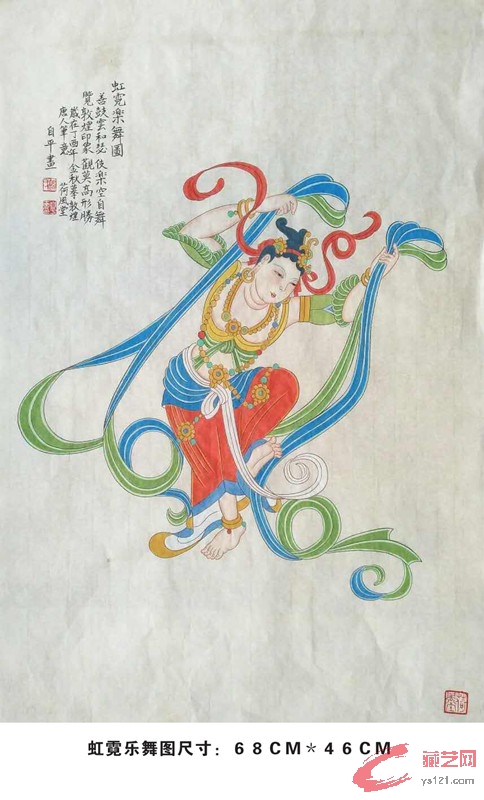 虹霓楽舞圖
善鼓雲和瑟 伎楽空自舞
覽敦煌印象 觀莫高形勝
歲在丁酉年金秋摹敦煌
唐人筆意 荷風堂
自平畫
虹霓乐舞图尺寸：６８ＣＭ＊４６ＣＭ
藏艺网
ys121.com